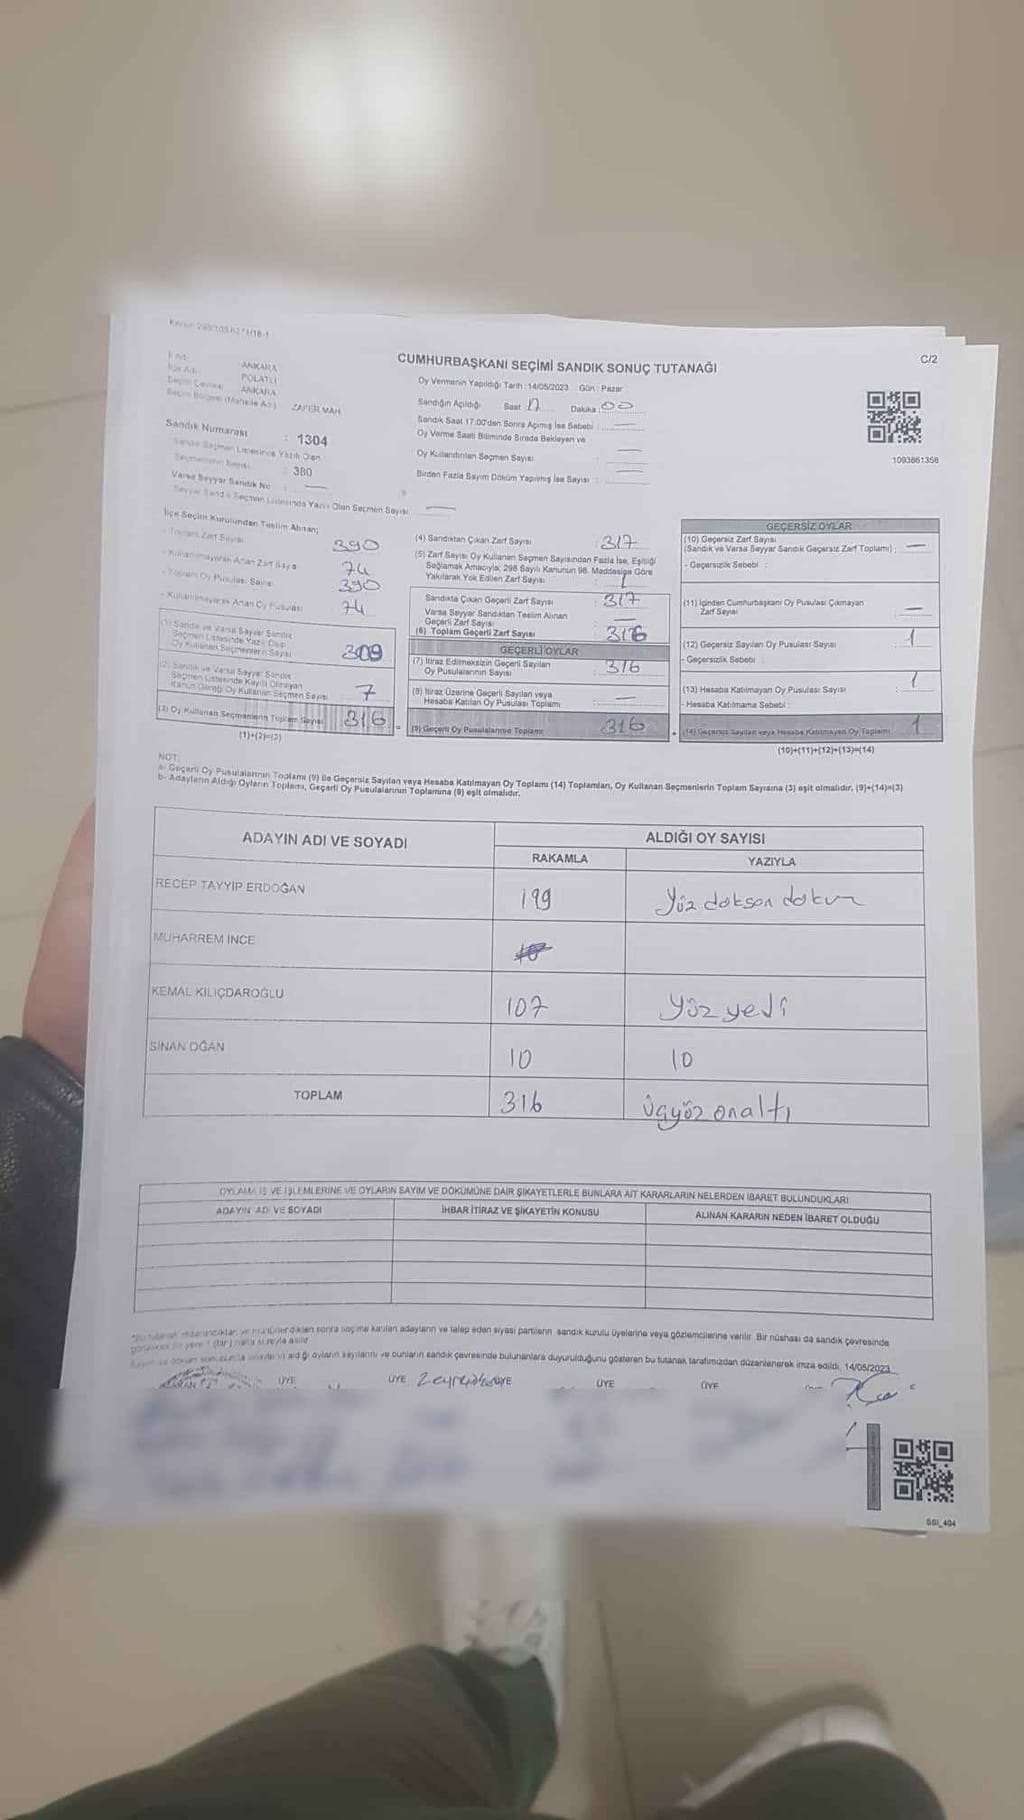 C/2
CUMHURBAŞKANI SEÇİMİ SANDIK SONUÇ TUTANAĞI
ANKARA
POLATLI
ANKARA
Seçim Bölgesi (Mahalle Adı) ZAFER MAH
Oy Vermenin Yapıldığı Tarih :14/05/2023 Gün : Pazar
Sandığın Açıldığı Saat Dakika : 00
Sandık Saat 17.00'den Sonra Açılmış İse Sebebi :
Oy Verme Saati Bitiminde Sırada Bekleyen ve
Oy Kullandırılan Seçmen Sayısı :
Birden Fazla Sayım Döküm Yapılmış İse Sayısı :
1093861358
Sandık Numarası : 1304
Sandık Seçmen Listesinde Yazılı Olan
Seçmenlerin Sayısı : 380
Varsa Seyyar Sandık No :
Seyyar Sandık Seçmen Listesinde Yazılı Olan Seçmen Sayısı
İlçe Seçim Kurulundan Teslim Alınan;
- Toplam Zarf Sayısı 390
- Kullanılmayarak Artan Zarf Sayısı 74
- Toplam Oy Pusulası Sayısı 390
- Kullanılmayarak Artan Oy Pusulası 74
(1) Sandık ve Varsa Seyyar Sandık
Seçmen Listesinde Yazılı Olup
Oy Kullanan Seçmenlerin Sayısı 309
(2) Sandık ve Varsa Seyyar Sandık
Seçmen Listesinde Kayıtlı Olmayan
Kanun Gereği Oy Kullanan Seçmen Sayısı 7
(3) Oy Kullanan Seçmenlerin Toplam Sayısı 316
(1)+(2)=(3)
(4) Sandıktan Çıkan Zarf Sayısı : 317
(5) Zarf Sayısı Oy Kullanan Seçmen Sayısından Fazla İse, Eşitliği
Sağlamak Amacıyla, 298 Sayılı Kanunun 98. Maddesine Göre
Yakılarak Yok Edilen Zarf Sayısı : 1
Sandıkta Çıkan Geçerli Zarf Sayısı : 317
Varsa Seyyar Sandıktan Teslim Alınan
Geçerli Zarf Sayısı :
(6) Toplam Geçerli Zarf Sayısı 316
GEÇERLİ OYLAR
(7) İtiraz Edilmeksizin Geçerli Sayılan
Oy Pusulalarının Sayısı : 316
(8) İtiraz Üzerine Geçerli Sayılan veya
Hesaba Katılan Oy Pusulası Toplamı :
(9) Geçerli Oy Pusulalarının Toplamı 316
GEÇERSİZ OYLAR
(10) Geçersiz Zarf Sayısı
(Sandık ve Varsa Seyyar Sandık Geçersiz Zarf Toplamı) :
- Geçersizlik Sebebi :
(11) İçinden Cumhurbaşkanı Oy Pusulası Çıkmayan
Zarf Sayısı :
(12) Geçersiz Sayılan Oy Pusulası Sayısı : 1
- Geçersizlik Sebebi :
(13) Hesaba Katılmayan Oy Pusulası Sayısı : 1
- Hesaba Katılmama Sebebi :
(14) Geçersiz Sayılan veya Hesaba Katılmayan Oy Toplamı 1
(10)+(11)+(12)+(13)=(14)
NOT:
a- Geçerli Oy Pusulalarının Toplamı (9) ile Geçersiz Sayılan veya Hesaba Katılmayan Oy Toplamı (14) Toplamları, Oy Kullanan Seçmenlerin Toplam Sayısına (3) eşit olmalıdır. (9)+(14)=(3)
b- Adayların Aldığı Oyların Toplamı, Geçerli Oy Pusulalarının Toplamına (9) eşit olmalıdır.
ADAYIN ADI VE SOYADI ALDIĞI OY SAYISI
RAKAMLA YAZIYLA
RECEP TAYYİP ERDOĞAN 199 Yüz doksan dokuz
MUHARREM İNCE
KEMAL KILIÇDAROĞLU 107 Yüz yedi
SİNAN OĞAN 10 10
TOPLAM 316 Üçyüz onaltı
OYLAMA İŞ VE İŞLEMLERİNE VE OYLARIN SAYIM VE DÖKÜMÜNE DAİR ŞİKAYETLERLE BUNLARA AİT KARARLARIN NELERDEN İBARET BULUNDUKLARI
ADAYIN ADI VE SOYADI İHBAR İTİRAZ VE ŞİKAYETİN KONUSU ALINAN KARARIN NEDEN İBARET OLDUĞU
sonra seçime katılan adayların ve talep eden siyasi partilerin sandık kurulu üyelerine veya gözlemcilerine verilir. Bir nüshası da sandık çevresinde
aldığı oyların sayılarını ve bunların sandık çevresinde bulunanlara duyurulduğunu gösteren bu tutanak tarafımızdan düzenlenerek imza edildi. 14/05/2023
ÜYE ÜYE ÜYE ÜYE ÜYE